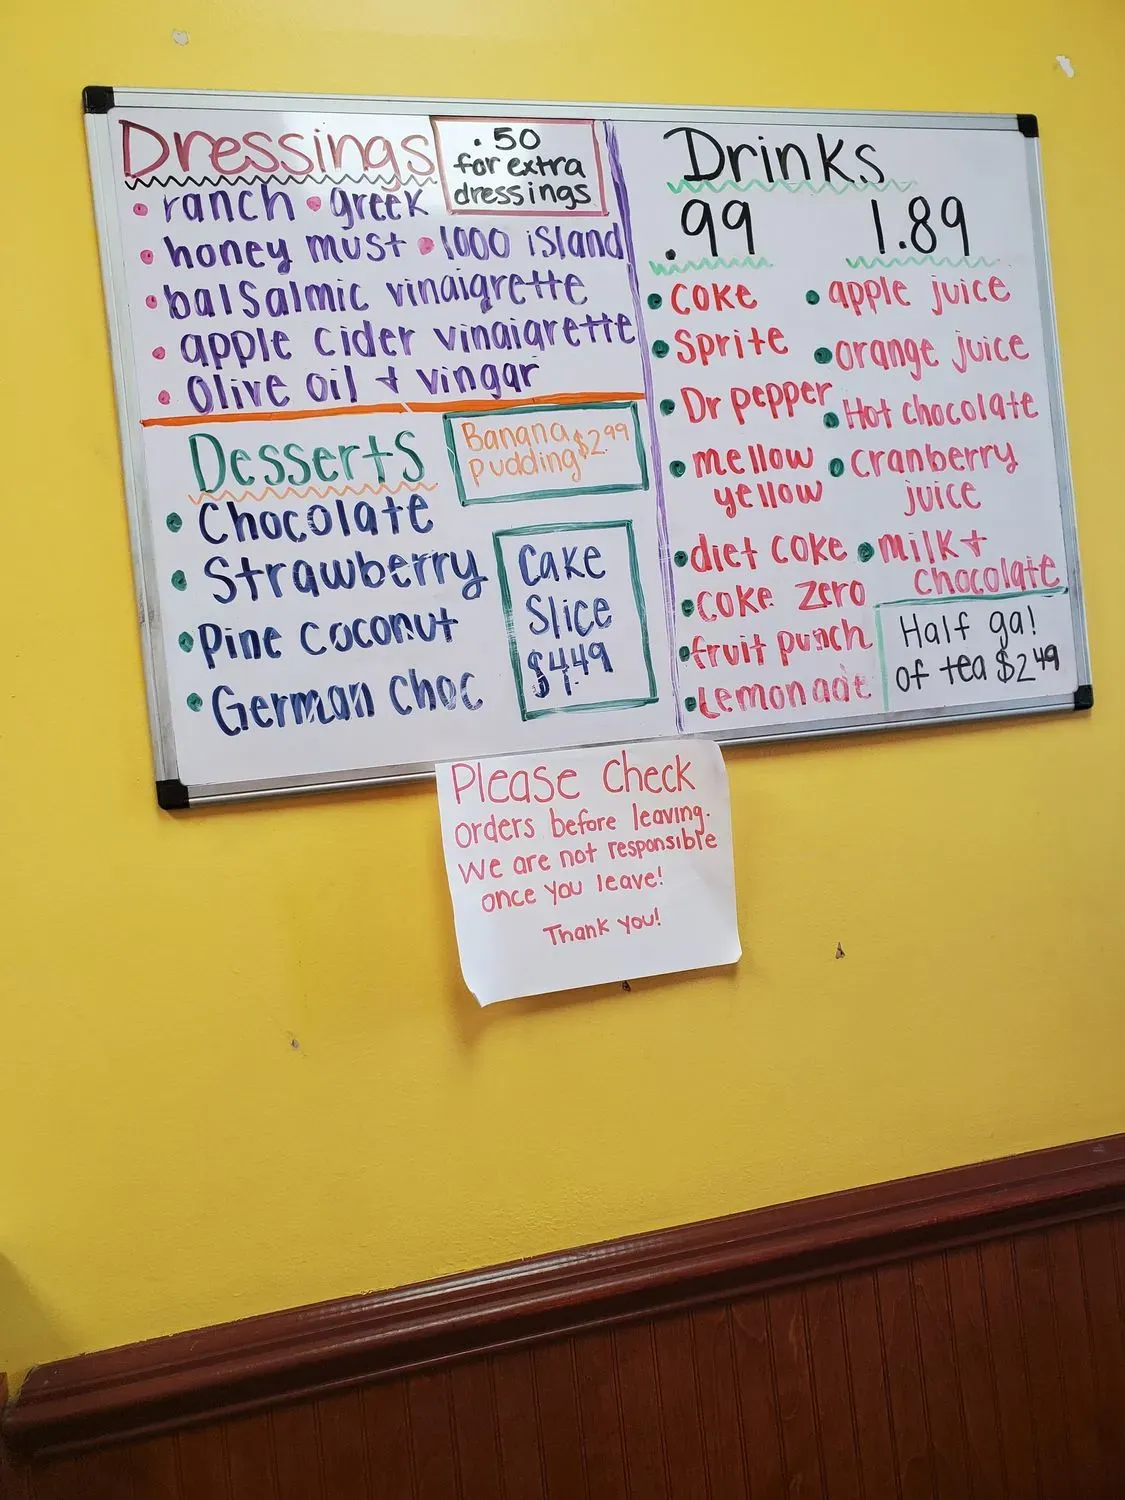 Dressings
.50
for extra
dressings
• ranch • greek
• honey must • 1000 island
• balsalmic vinaigrette
• apple cider vinaigrette
• Olive oil + vingar
Desserts
Banana $2.99
pudding
• Chocolate
• Strawberry
• Pine Coconut
• German Choc
Cake
Slice
$4.49
Drinks
.99
• Coke
• Sprite
• Dr pepper
• mellow
yellow
• diet coke
• Coke zero
• fruit punch
• Lemonade
1.89
• apple juice
• orange juice
• Hot chocolate
• Cranberry
juice
• milk +
chocolate
Half gal
of tea $2.49
Please Check
orders before leaving.
We are not responsible
once you leave!
Thank you!